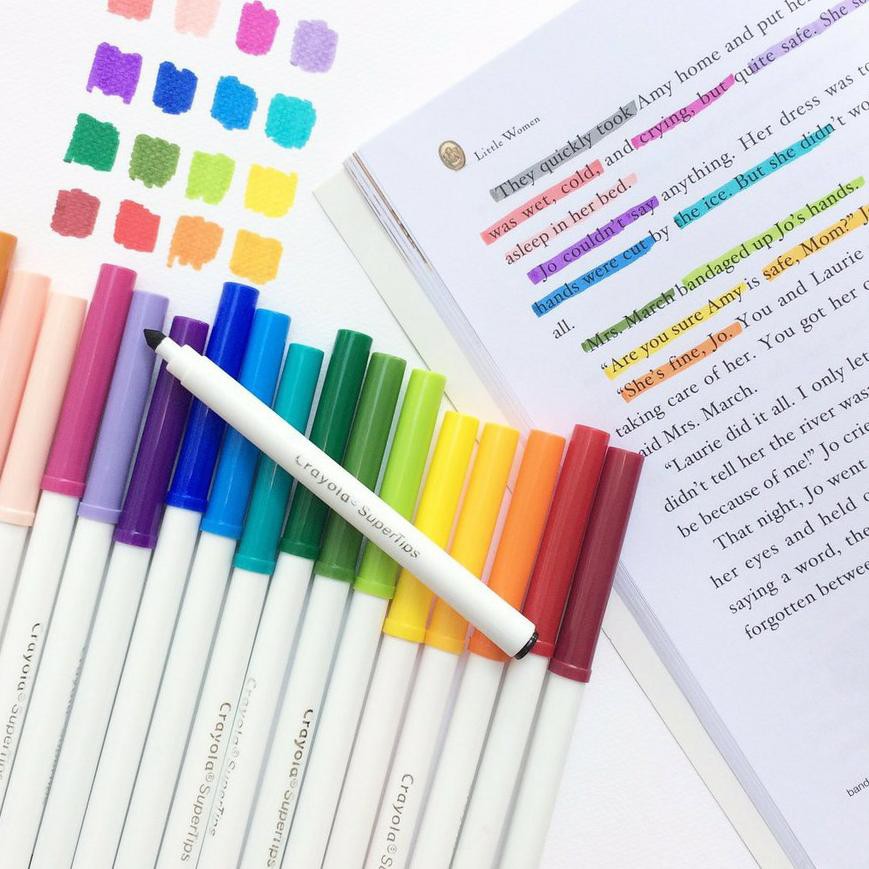 Little Women
They quickly took Amy home and put her
was wet, cold, and crying, but quite safe. She
asleep in her bed.
Jo couldn't say anything. Her dress was
hands were cut by the ice. But she didn't
all.
Mrs. March bandaged up Jo's hands.
"Are you sure Amy is safe, Mom?"
"She's fine, Jo. You and Laurie
taking care of her. You got her
said Mrs. March.
"Laurie did it all. I only let
didn't tell her the river was
be because of me!" Jo
That night, Jo went
her eyes and held
saying a word,
forgotten
Crayola® SuperTips
Crayola® SuperTips
Crayola® SuperTips
Crayola® SuperTips
Crayola®